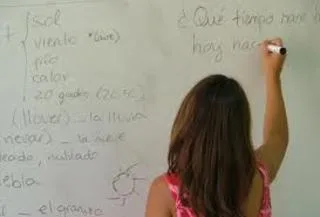 sol
viento *(aire)
frío
calor
20 grados (20.5C)
(llover) _ la lluvia
nevar) _ la nieve
nublado
el granizo
¿Qué tiempo hace
hoy hace